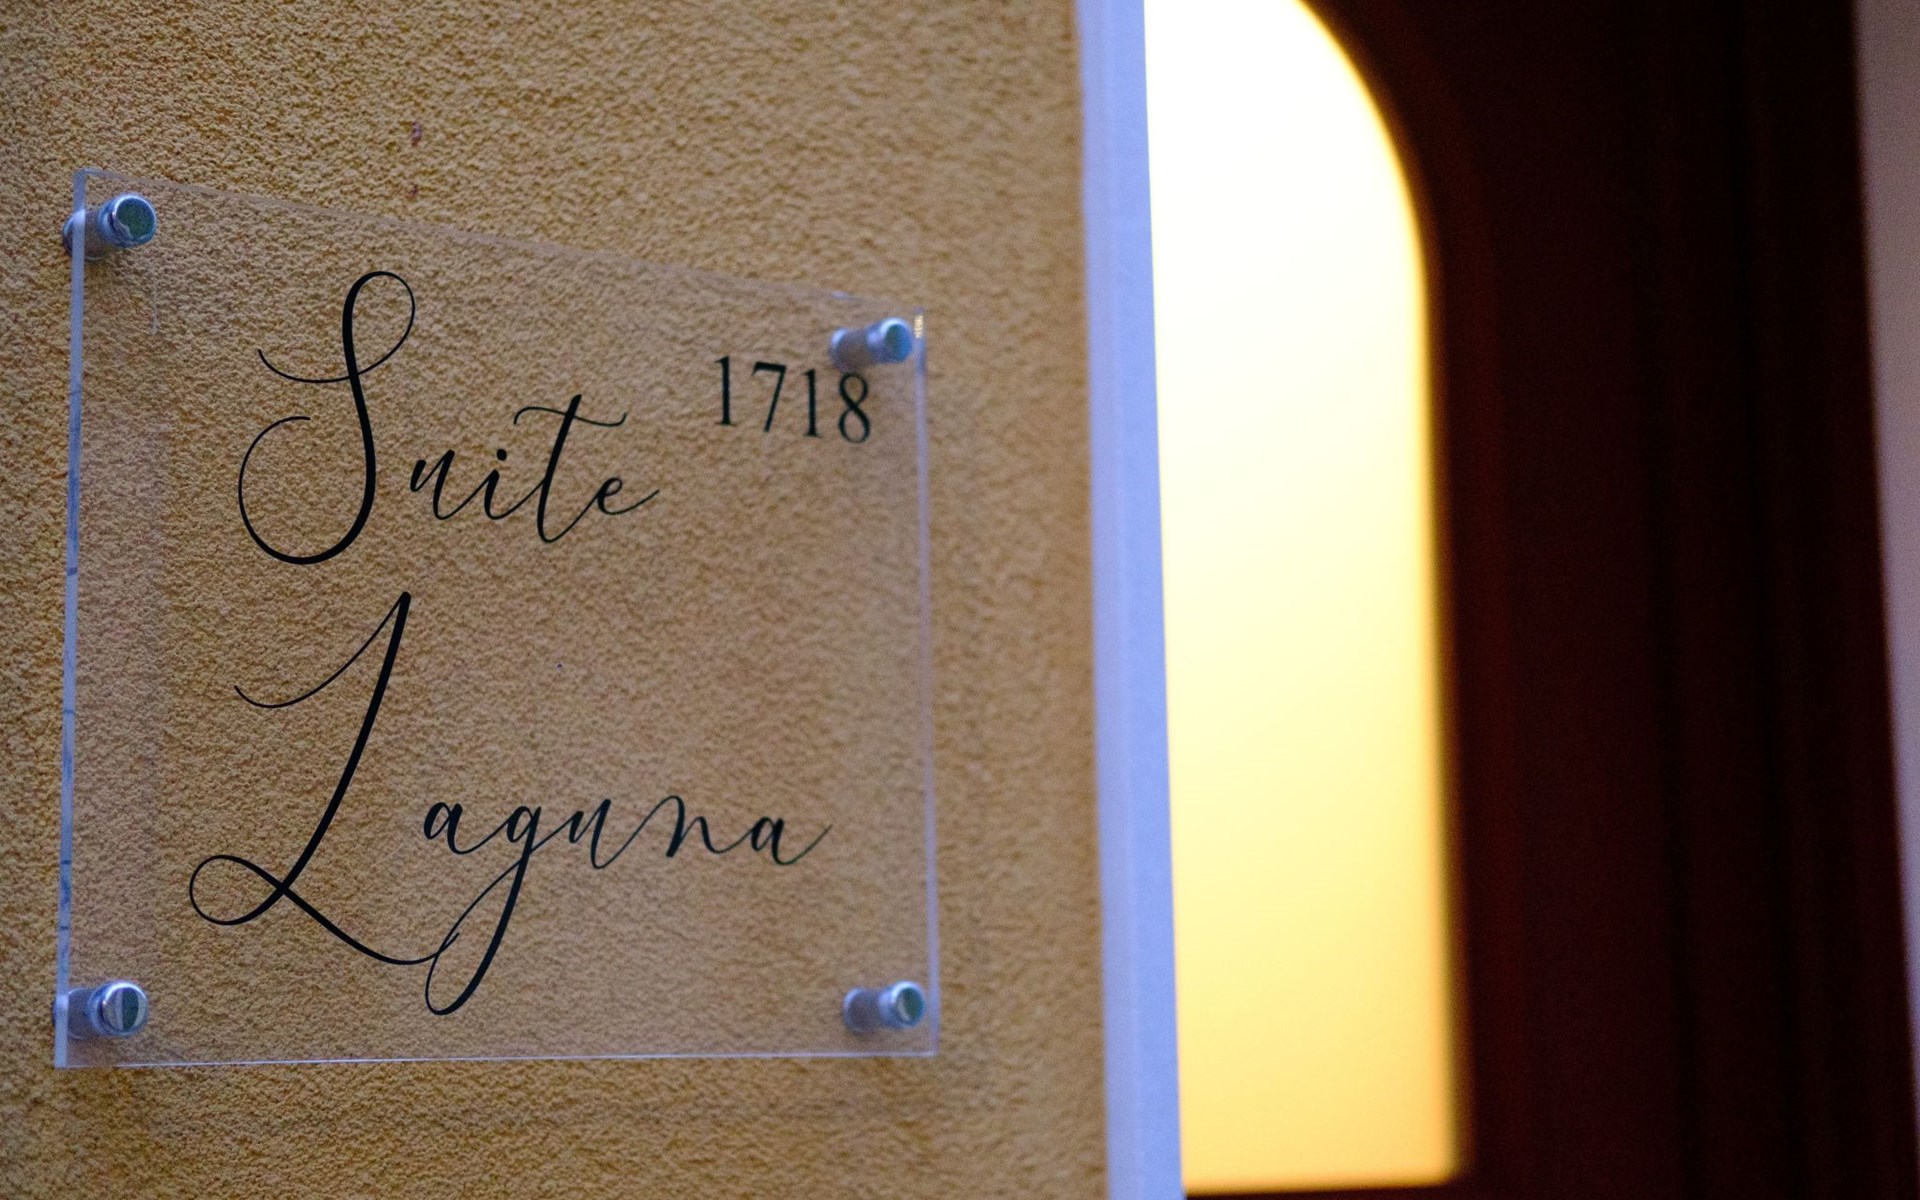 Suite 1718
Laguna